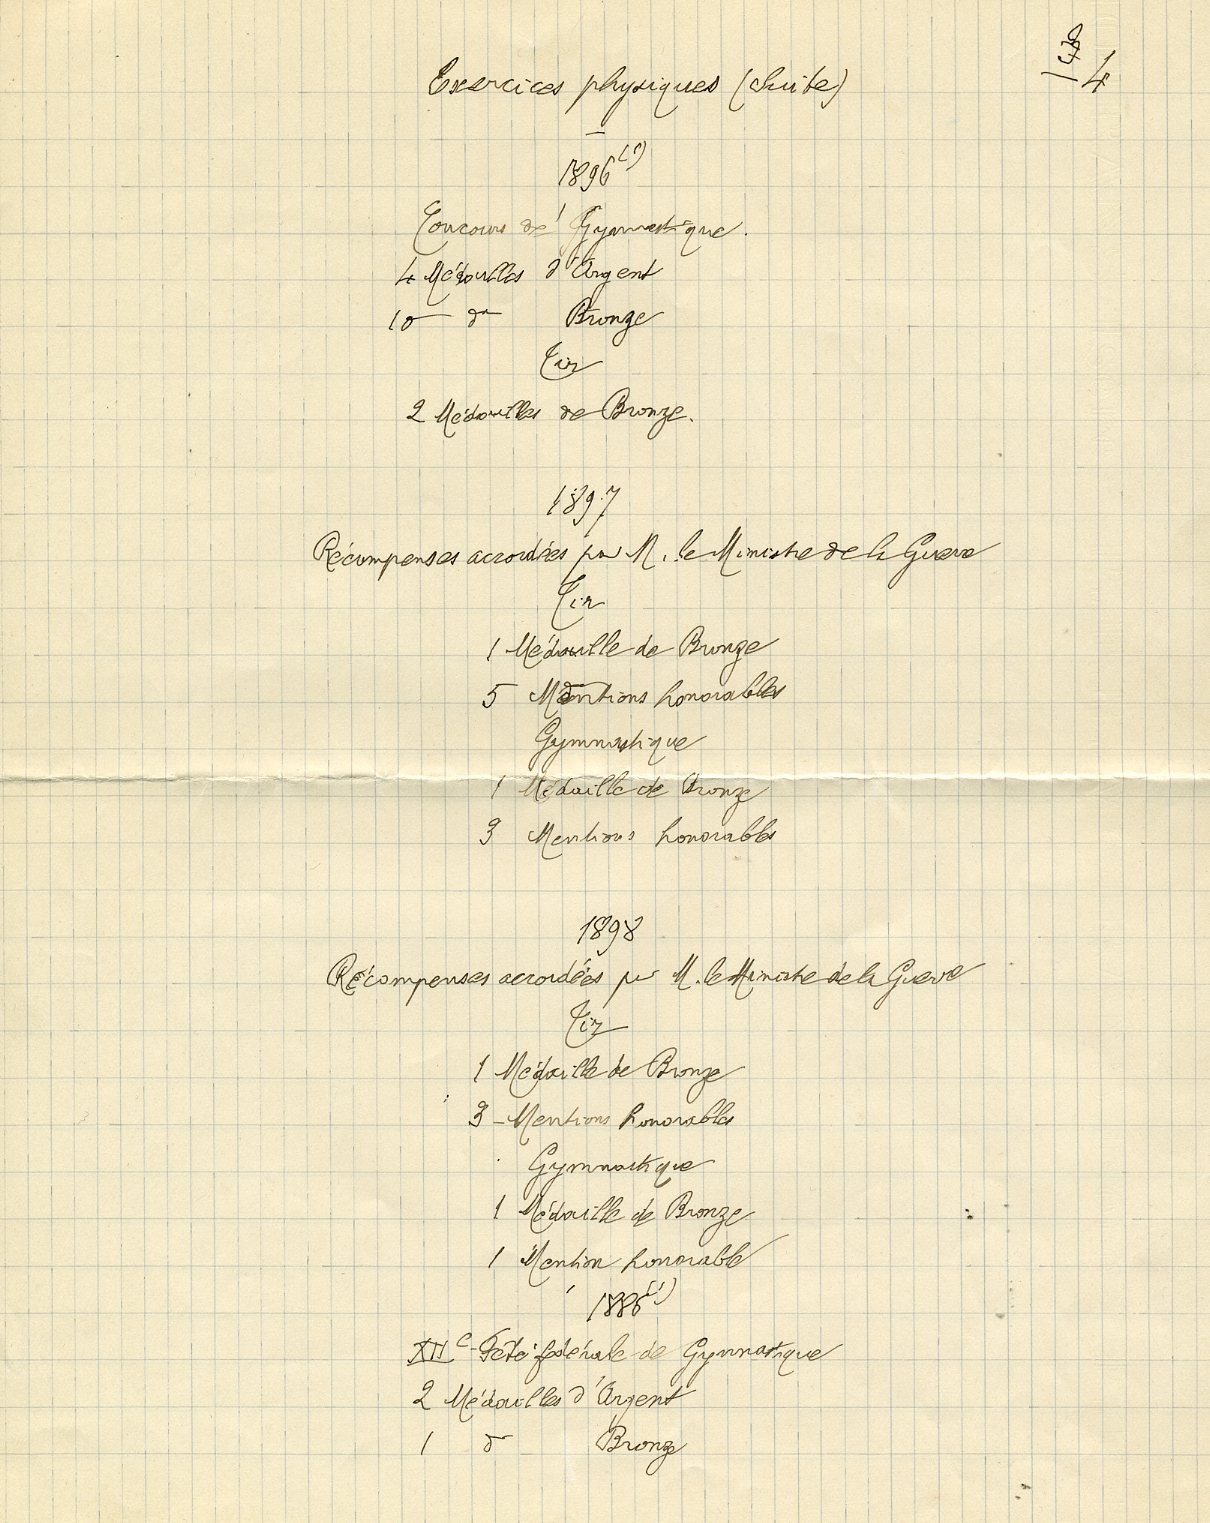 4
Exercices physiques (Suite)
1896 (1)
Concours de Gymnastique.
4 Médailles d'Argent
10 do Bronze
Tir
2 Médailles de Bronze.
1897
Récompenses accordées par M. le Ministre de la Guerre
Tir
1 Médaille de Bronze
5 Mentions honorables
Gymnastique
1 Médaille de Bronze
3 Mentions honorables
1898
Récompenses accordées par M. le Ministre de la Guerre
Tir
1 Médaille de Bronze
3 - Mentions honorables
Gymnastique
1 Médaille de Bronze
1 Mention honorable
1886 (1)
XIIe Fête fédérale de Gymnastique
2 Médailles d'Argent
1 do Bronze